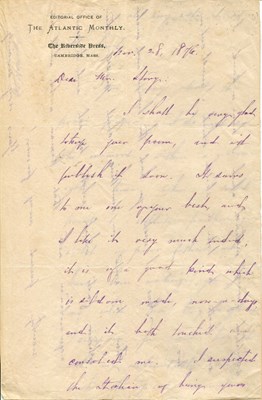 EDITORIAL OFFICE OF
THE ATLANTIC MONTHLY.
The Riverside Press,
CAMBRIDGE, MASS.
Nov. 28, 1876.
Dear
I shall be very glad
to keep your poem, and will
publish it soon. It seems
to me one of your best, and
I like it very much indeed.
it is of a good kind, which
is seldom made, now-a-days
and it both touched and
consoled me. I suspected
the